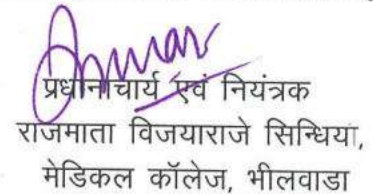 प्रधानाचार्य एवं नियंत्रक
राजमाता विजयाराजे सिन्धिया,
मेडिकल कॉलेज, भीलवाडा